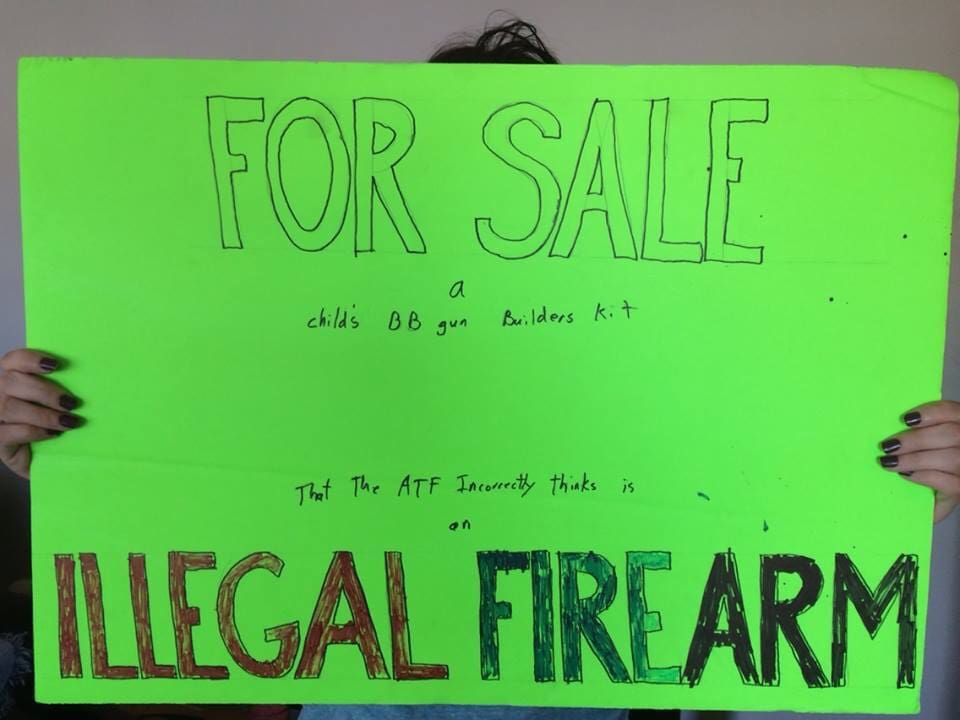 FOR SALE
a
child's BB gun Builders Kit
That The ATF Incorrectly thinks is
an
ILLEGAL FIREARM